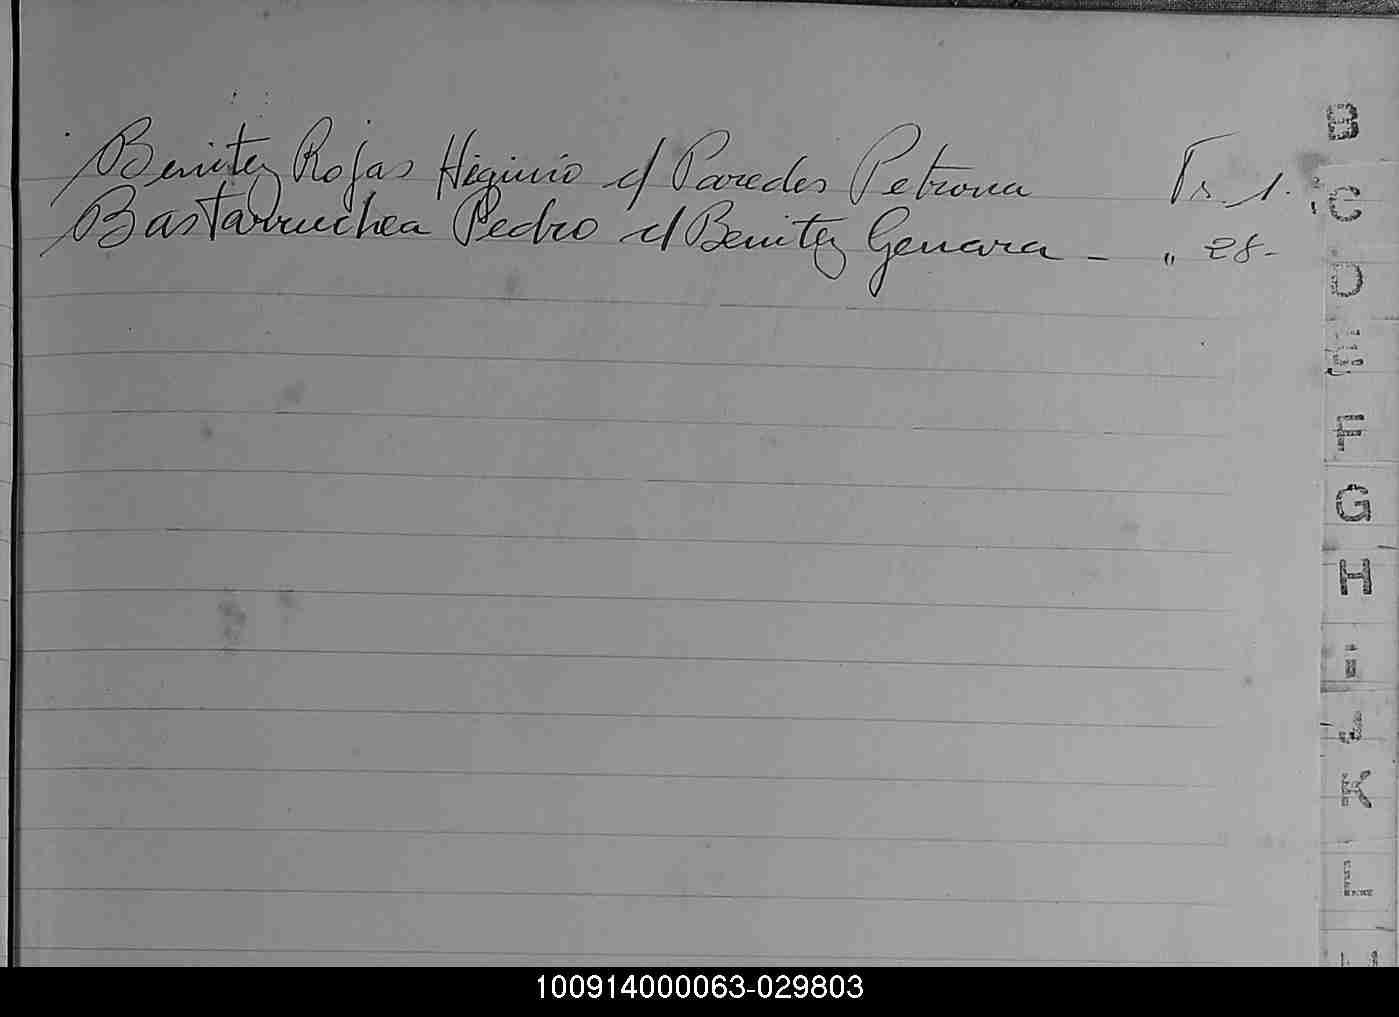 Benitez Rojas Higinio c/ Paredes Petrona Fs. 1.
Bastarruchea Pedro c/ Benitez Genara - " 28-
B
C
D
E
F
G
H
I
J
K
L
100914000063-029803